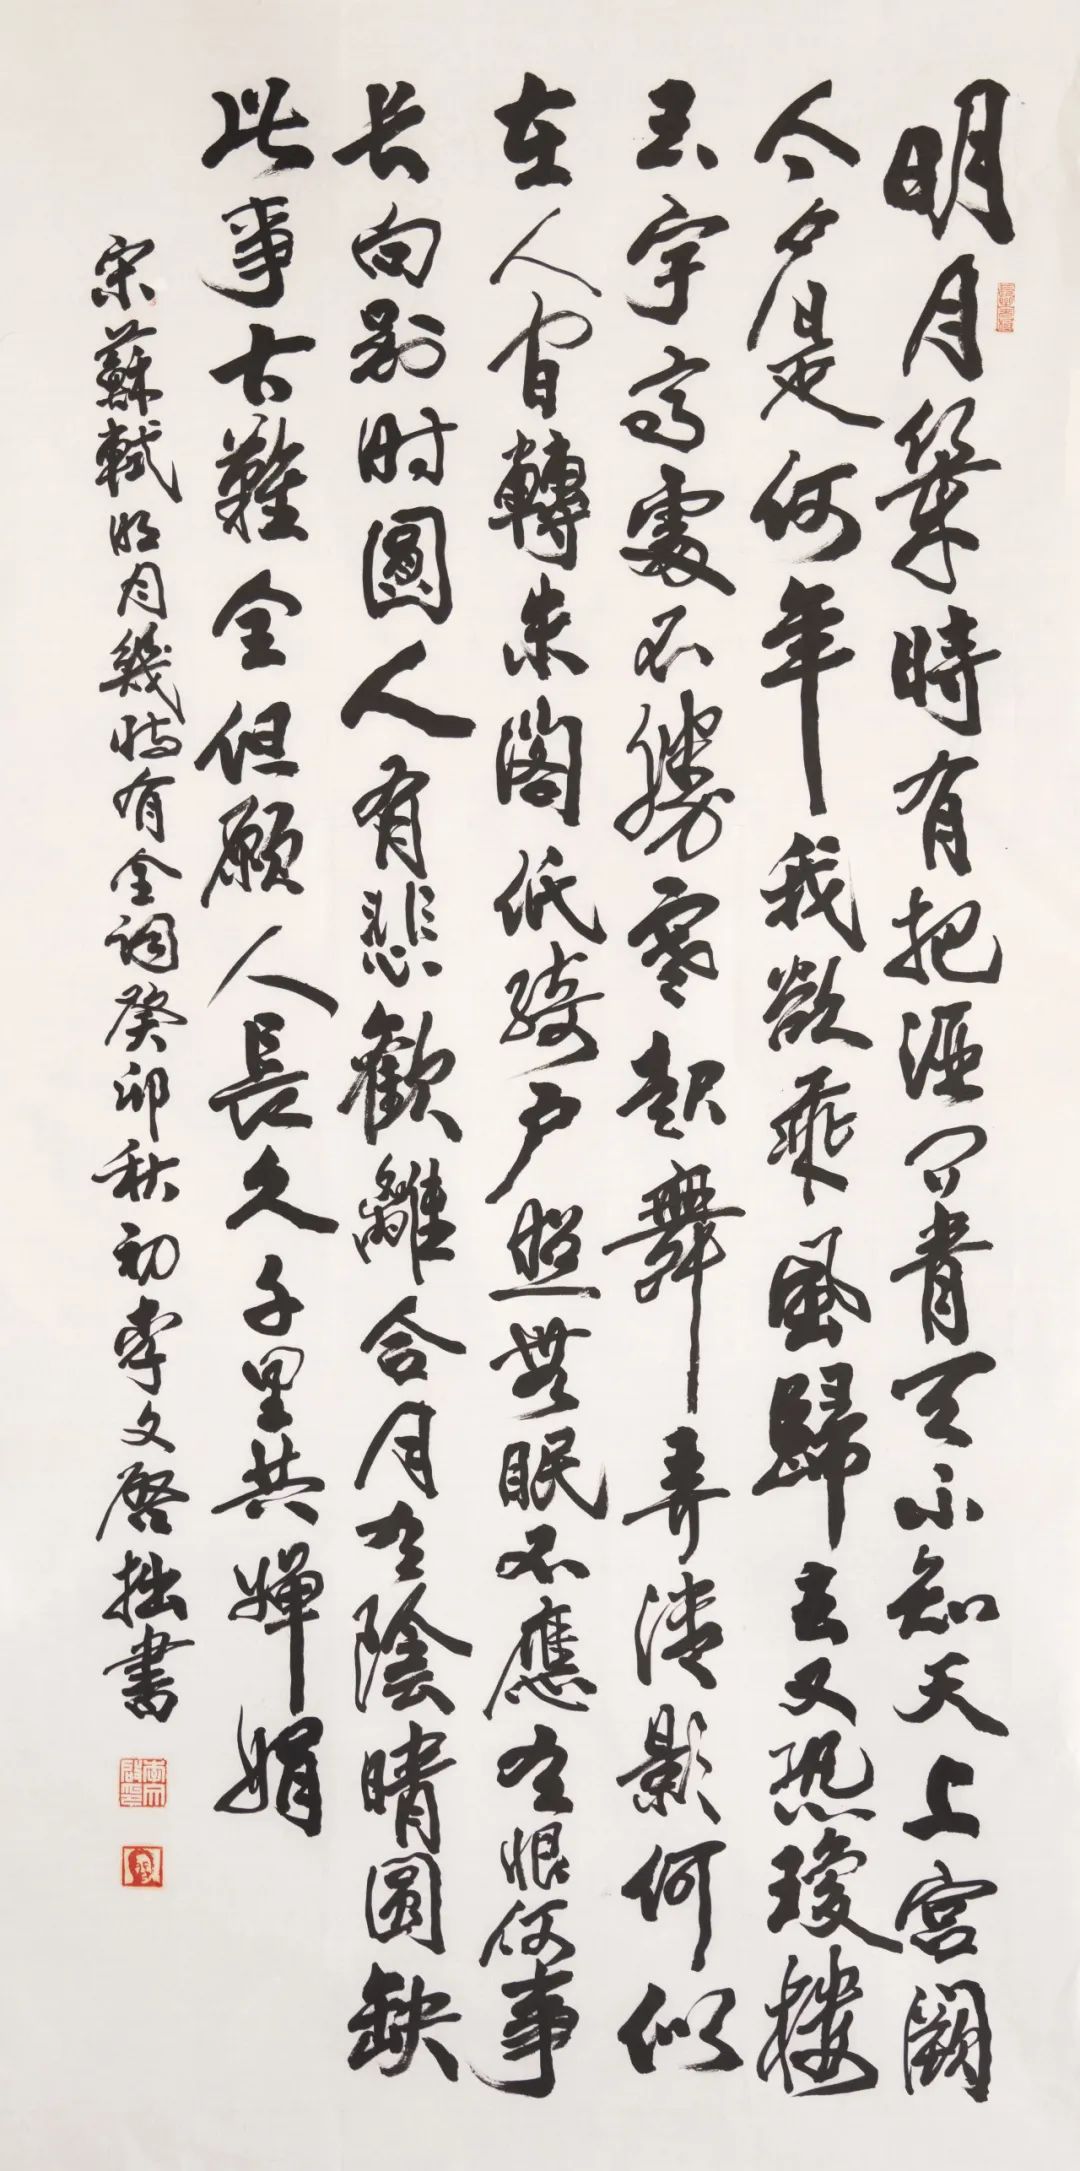 明月幾時有把酒問青天不知天上宮闕
今夕是何年我欲乘風歸去又恐瓊樓
玉宇高處不勝寒起舞弄清影何似
在人間轉朱閣低綺戶照無眠不應有恨何事
长向別时圓人有悲歡離合月有陰晴圓缺
此事古難全但願人長久千里共嬋娟
宋蘇軾明月幾時有全詞癸卯秋初李文啓拙書